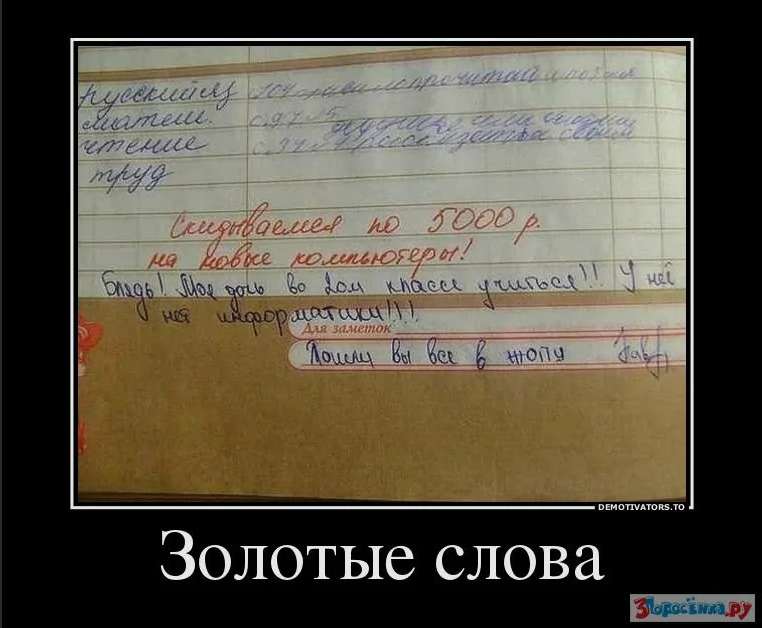 русский яз
матем. с.97
чтение с.94
труд
Скидываемся по 5000 р.
на новые компьютеры!
Блядь! Моя дочь во 2ом классе учиться!! У неё
нет информатики!!!
Для заметок
Пошли вы все в жопу
DEMOTIVATORS.TO
Золотые слова
3Поросёнка.ру